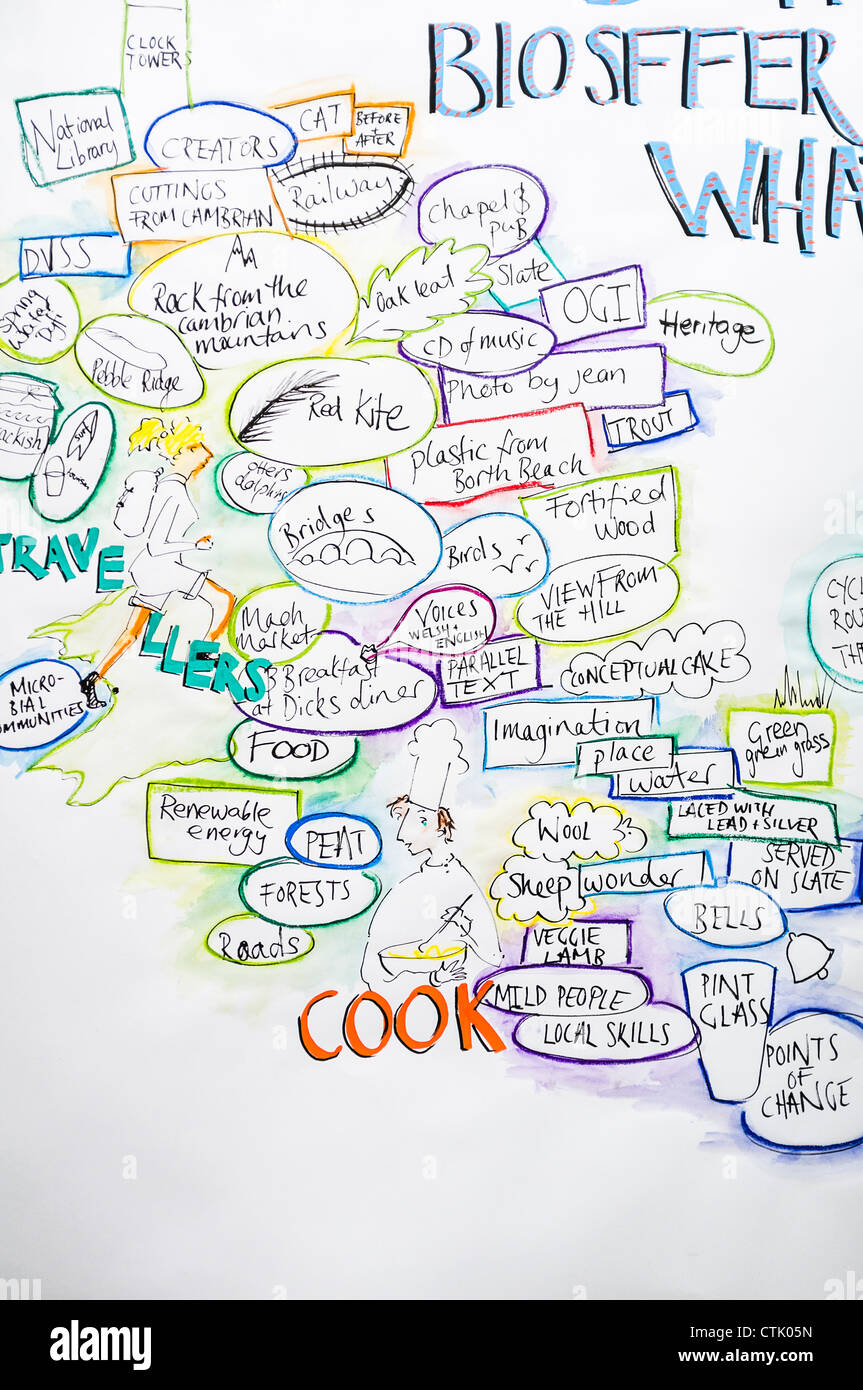 BIOSFFER
WHA
CLOCK
TOWERS
National
Library
CREATORS
CAT
BEFORE
+
AFTER
CUTTINGS
FROM CAMBRIAN
Railway
Chapel &
pub
DVSS
Rock from the
cambrian
mountains
Oak leaf
Slate
OGI
Heritage
Spring
Water
Dyfi
Pebble Ridge
CD of music
Photo by jean
Red Kite
TROUT
plastic from
Borth Beach
otters
dolphins
Bridges
Birds
Fortified
Wood
VIEW FROM
THE HILL
TRAVE
LLERS
Mach
market
VOICES
WELSH +
ENGLISH
B Breakfast
at Dicks diner
PARALLEL
TEXT
CONCEPTUAL CAKE
CYC
ROU
TH
MICRO-
BIAL
COMMUNITIES
FOOD
Imagination
place
water
Green
green grass
Renewable
energy
PEAT
FORESTS
Roads
WOOL
Sheep
wonder
LACED WITH
LEAD + SILVER
SERVED
ON SLATE
BELLS
VEGGIE
LAMB
MILD PEOPLE
LOCAL SKILLS
PINT
GLASS
POINTS
OF
CHANGE
COOK
alamy
alamy
Image ID: CTK05N
www.alamy.com